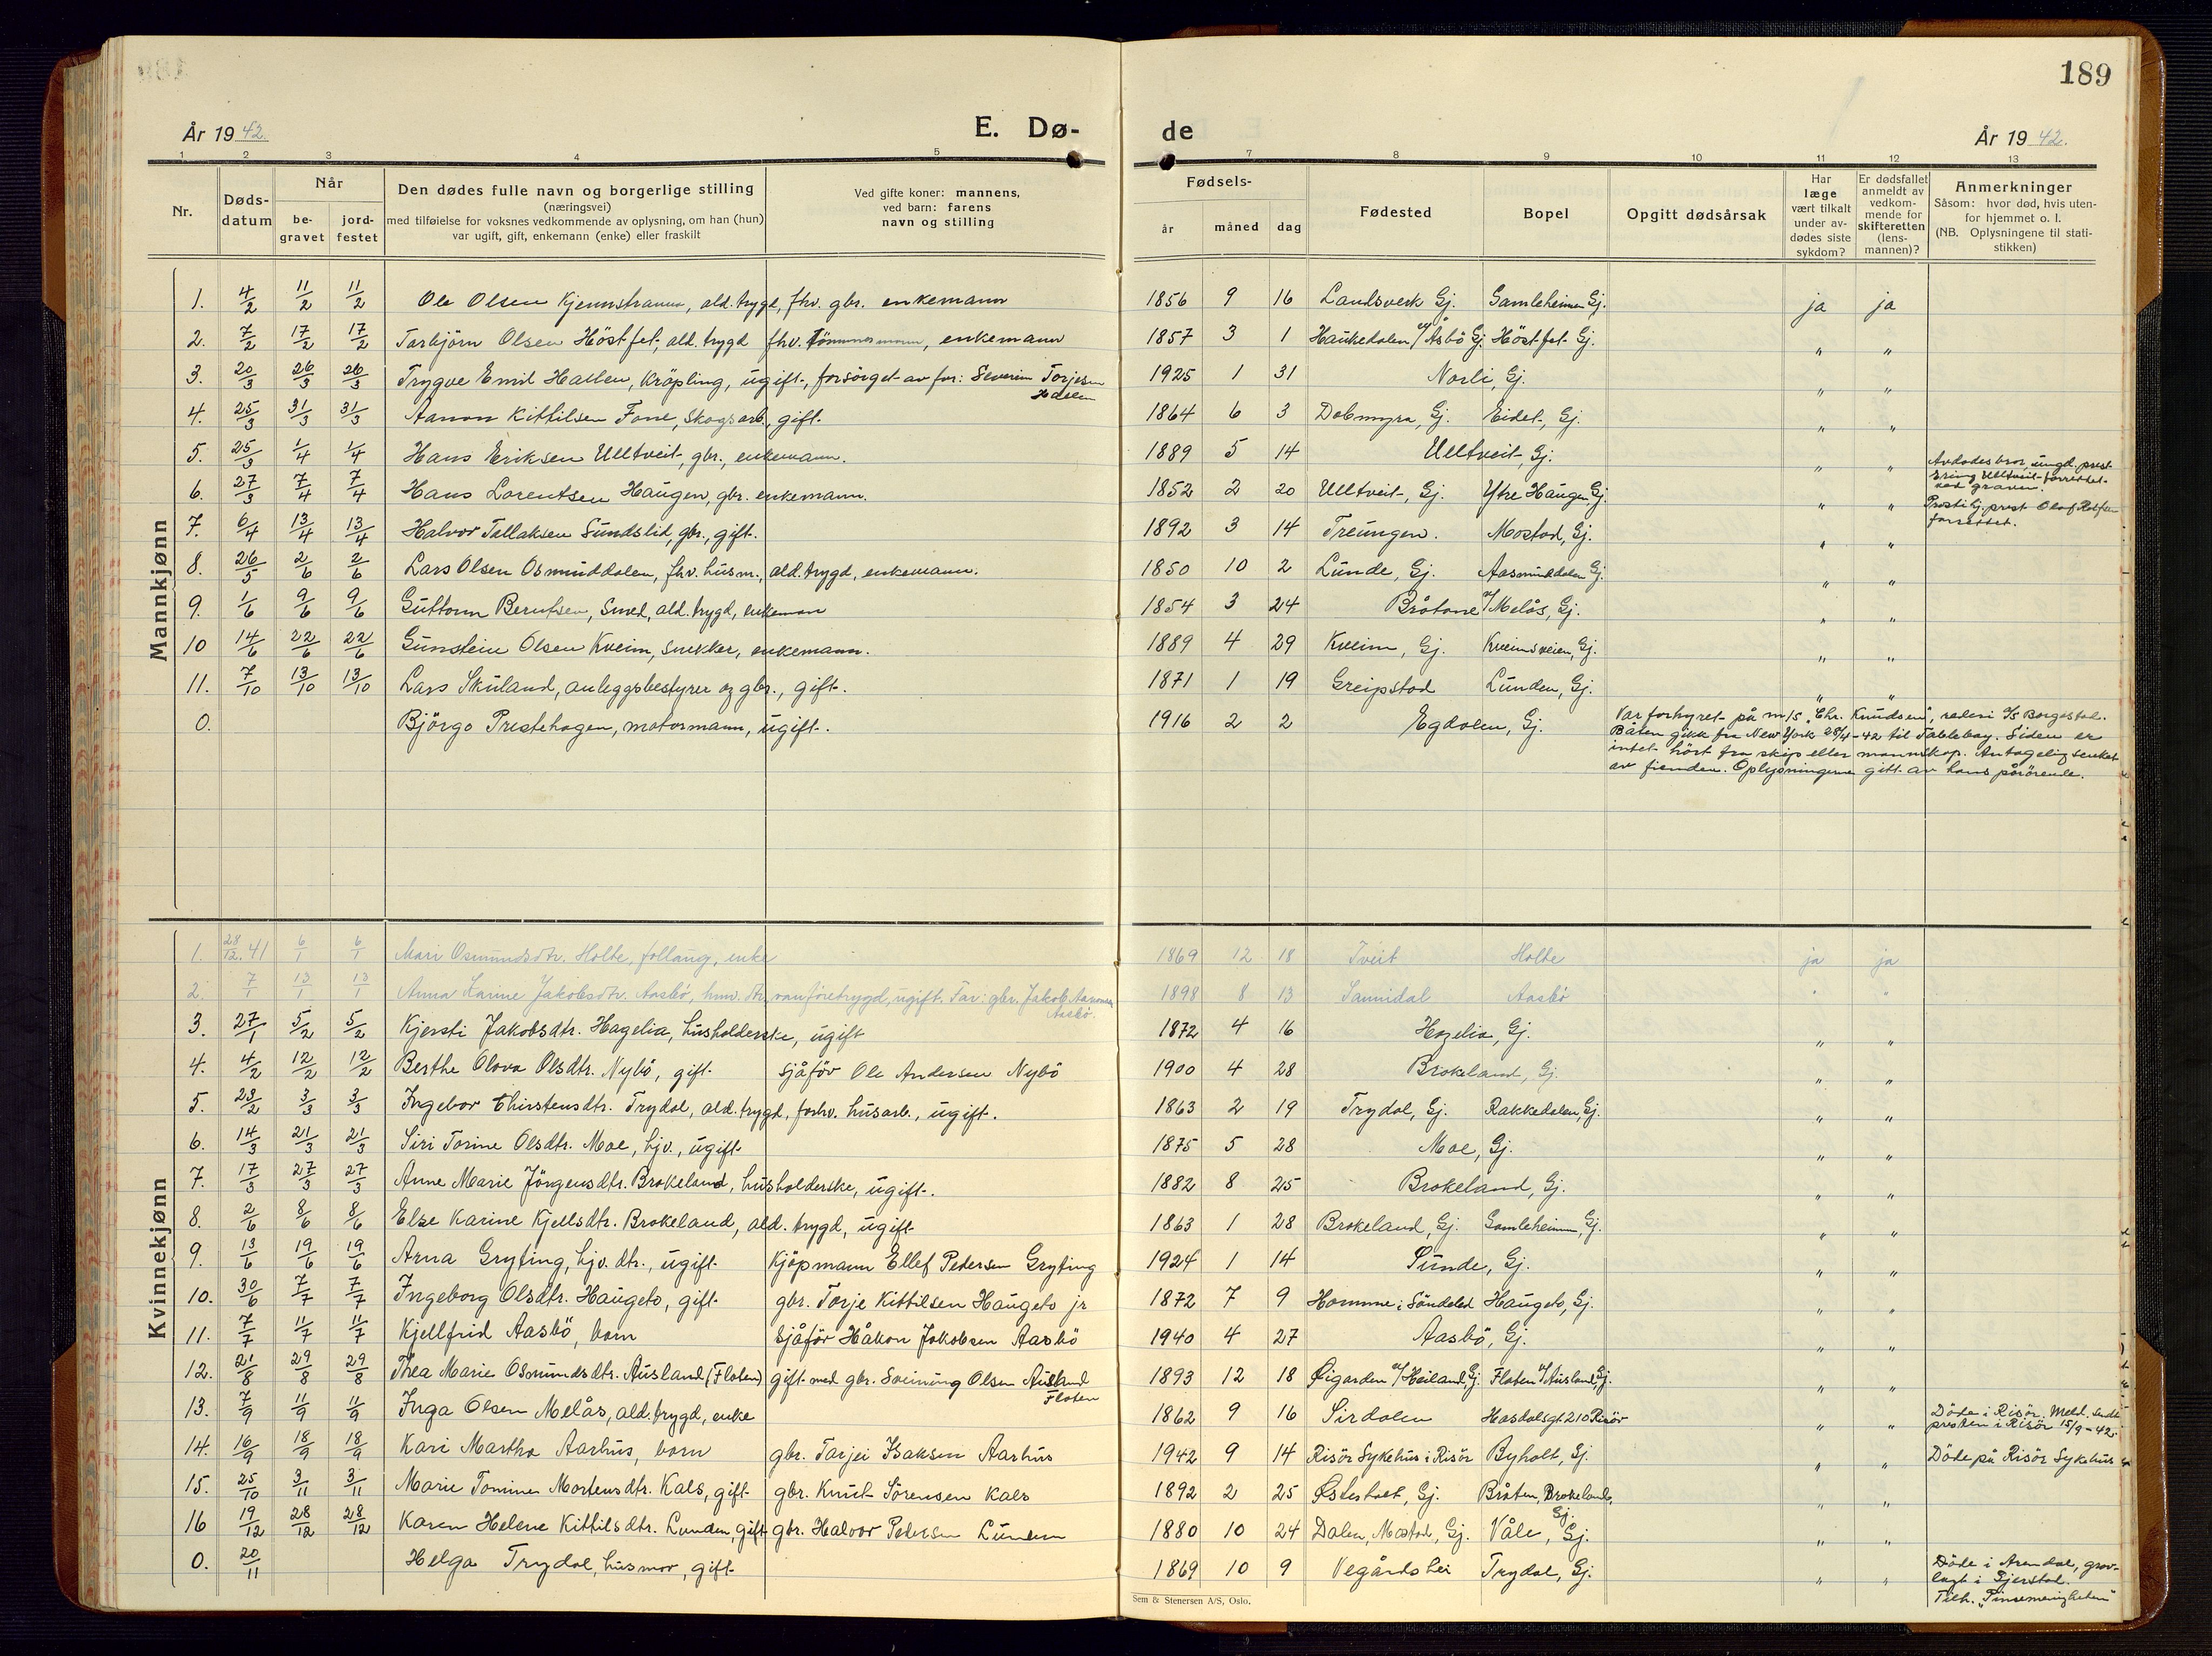 189
År 1942.
E. Dø-
de
År 1942.
1 2 3 4 5 7 8 9 10 11 12 13
Nr.
Døds-
datum
Når
be-
gravet
jord-
festet
Den dødes fulle navn og borgerlige stilling
(næringsvei)
med tilføielse for voksnes vedkommende av oplysning, om han (hun)
var ugift, gift, enkemann (enke) eller fraskilt
Ved gifte koner: mannens,
ved barn: farens
navn og stilling
Fødsels-
år måned dag
Fødested
Bopel
Opgitt dødsårsak
Har
læge
vært tilkalt
under av-
dødes siste
sykdom?
Er dødsfallet
anmeldt av
vedkom-
mende for
skifteretten
(lens-
mannen)?
Anmerkninger
Såsom: hvor død, hvis uten-
for hjemmet o. l.
(NB. Oplysningene til stati-
stikken)
Mannkjønn
1. 4/2 11/2 11/2 Ole Olsen Kjennstraum, ald.trygd, fhv. gbr. enkemann 1856 9 16 Landsverk Gj. Gamleheimen Gj. ja ja
2. 7/2 17/2 17/2 Tarbjörn Olsen Höstfet, ald. trygd fhv. tömmermann, enkemann 1857 3 1 Haukedalen u/Åsbö Gj. Höstfet Gj. " "
3. 20/3 26/3 26/3 Trygve Emil Hallen, Kröpling, ugift, forsörget av far: Severin Torjesen 1925 1 31 Norli, Gj. " "
4. 25/3 31/3 31/3 Aanon Kittilsen Fone, Skogsarb., gift. 1864 6 3 Dalsmyra, Gj. Eidet, Gj. " "
5. 25/3 1/4 1/4 Hans Eriksen Ulltveit, gbr., enkemann. 1889 5 14 Ulltveit, Gj. " " Avdödes bror, ungd. prest
Erling Ulltveit forrettet
ved graven.
6. 27/3 7/4 7/4 Hans Lorentsen Haugen, gbr. enkemann. 1852 2 20 Ulltveit, Gj. Ytre Haugen Gj. " " prest Olaf
forrettet.
7. 6/4 13/4 13/4 Halvor Tallaksen Sundslid, gbr., gift. 1892 3 14 Treungen. Mostad, Gj. " "
8. 26/5 2/6 2/6 Lars Olsen Osmunddalen, fhv. husm., ald.trygd, enkemann. 1850 10 2 Lunde, Gj. Aasmunddalen Gj. " "
9. 1/6 9/6 9/6 Guttorm Berntsen, Smed, ald.trygd, enkeman 1854 3 24 Bråtane u/Melås, Gj. " "
10 14/6 22/6 22/6 Gunstein Olsen Kveim, Snekker, enkemann. 1889 4 29 Kveim, Gj. Kveimsveien, Gj. " "
11. 7/10 13/10 13/10 Lars Skuland, anleggsbestyrer og gbr., gift. 1871 1 19 Greipstad Lunden, Gj. " "
0. Björgo Prestehagen, motormann, ugift. 1916 2 2 Egdalen, Gj. Var forhyret på m/s "Chr. Knudsen", rederi A/S Borgestad.
Båten gikk fra New York 28/4-42 til Tablebay. Siden er
intet hört fra skip eller mannskap. Antagelig senket
av fienden. Oplysningene gitt av hans pårörende.
Kvinnekjønn
1. 28/12.41 6/1 6/1 Mari Osmundsdtr. Holte, follaug, enke 1869 12 18 Tveit Holte ja ja
2. 7/1 13/1 13/1 Anna Karine Jakobsdtr. Aasbö, hmv. dtr, vanföretrygd, ugift. Far: gbr. Jakob Aanonsen
Aasbö. 1898 8 13 Sannidal Aasbö " "
3. 27/1 5/2 5/2 Kjersti Jakobsdtr. Hagelia, husholderske, ugift 1872 4 16 Hagelia, Gj. " "
4. 4/2 12/2 12/2 Berthe Olava Olsdtr. Nybö, gift. sjåför Ole Andersen Nybö 1900 4 28 Brokeland, Gj. " "
5. 23/2 3/3 3/3 Ingebor Thirstensdtr. Trydal, ald.trygd, forhv. husarb., ugift. 1863 2 19 Trydal, Gj. Rakkedalen, Gj. " "
6. 14/3 21/3 21/3 Siri Torine Olsdtr. Moe, hjv., ugift 1875 5 28 Moe, Gj. " "
7. 17/3 27/3 27/3 Anne Marie Jörgensdtr. Brokeland, husholderske, ugift. 1882 8 25 Brokeland, Gj. " "
8. 2/6 8/6 8/6 Else Karine Kjellsdtr. Brokeland, ald. trygd, ugift 1863 1 28 Brokeland, Gj. Gamleheimen, Gj. " "
9. 13/6 19/6 19/6 Arna Gryting, hjv. dtr., ugift. Kjöpmann Ellef Pedersen Gryting 1924 1 14 Sunde, Gj. " "
10. 30/6 7/7 7/7 Ingeborg Olsdtr. Haugeto, gift. gbr. Torje Kittilsen Haugeto jr 1872 7 9 Homme i Söndeled Haugeto, Gj. " "
11. 7/7 11/7 11/7 Kjellfrid Aasbö, barn sjåför Håkon Jakobsen Aasbö 1940 4 27 Aasbö, Gj. " "
12. 21/8 29/8 29/8 Thea Marie Osmundsdtr. Ausland (Floten) gift med gbr. Sveinung Olsen Ausland
Floten 1893 12 18 Øigarden u/Heiland, Gj. Flaten u/Ausland, Gj. " "
13. 7/9 11/9 11/9 Inga Olsen Melås, ald.trygd, enke 1862 9 16 Sirdalen Hasdalsgt 210 Risör " " Döde i Risör. Meld. sendt
presten i Risör 15/9-42.
14. 16/9 18/9 18/9 Kari Martha Aarhus, barn gbr. Tarjei Isaksen Aarhus 1942 9 14 Risör Sykehus i Risör Byholt, Gj. " " Döde på Risör Sykehus
15. 25/10 3/11 3/11 Marie Tomine Mortensdtr. Kals, gift gbr. Knut Sörensen Kals 1892 2 25 Østestoet, Gj. Bråten, Brokeland,
Gj. " "
16 19/12 28/12 28/12 Karen Helene Kittilsdtr. Lunden, gift gbr. Halvor Pedersen Lunden 1880 10 24 Dalen, Mostad, Gj. Våle, Gj. " "
0. 20/11 Helga Trydal, husmor, gift. 1869 10 9 Vegårdshei Trydal, Gj. " " Döde i Arendal, grav-
lagt i Gjerstad.
Tilh. "Pinsemenigheten"
Sem & Stenersen A/S, Oslo.